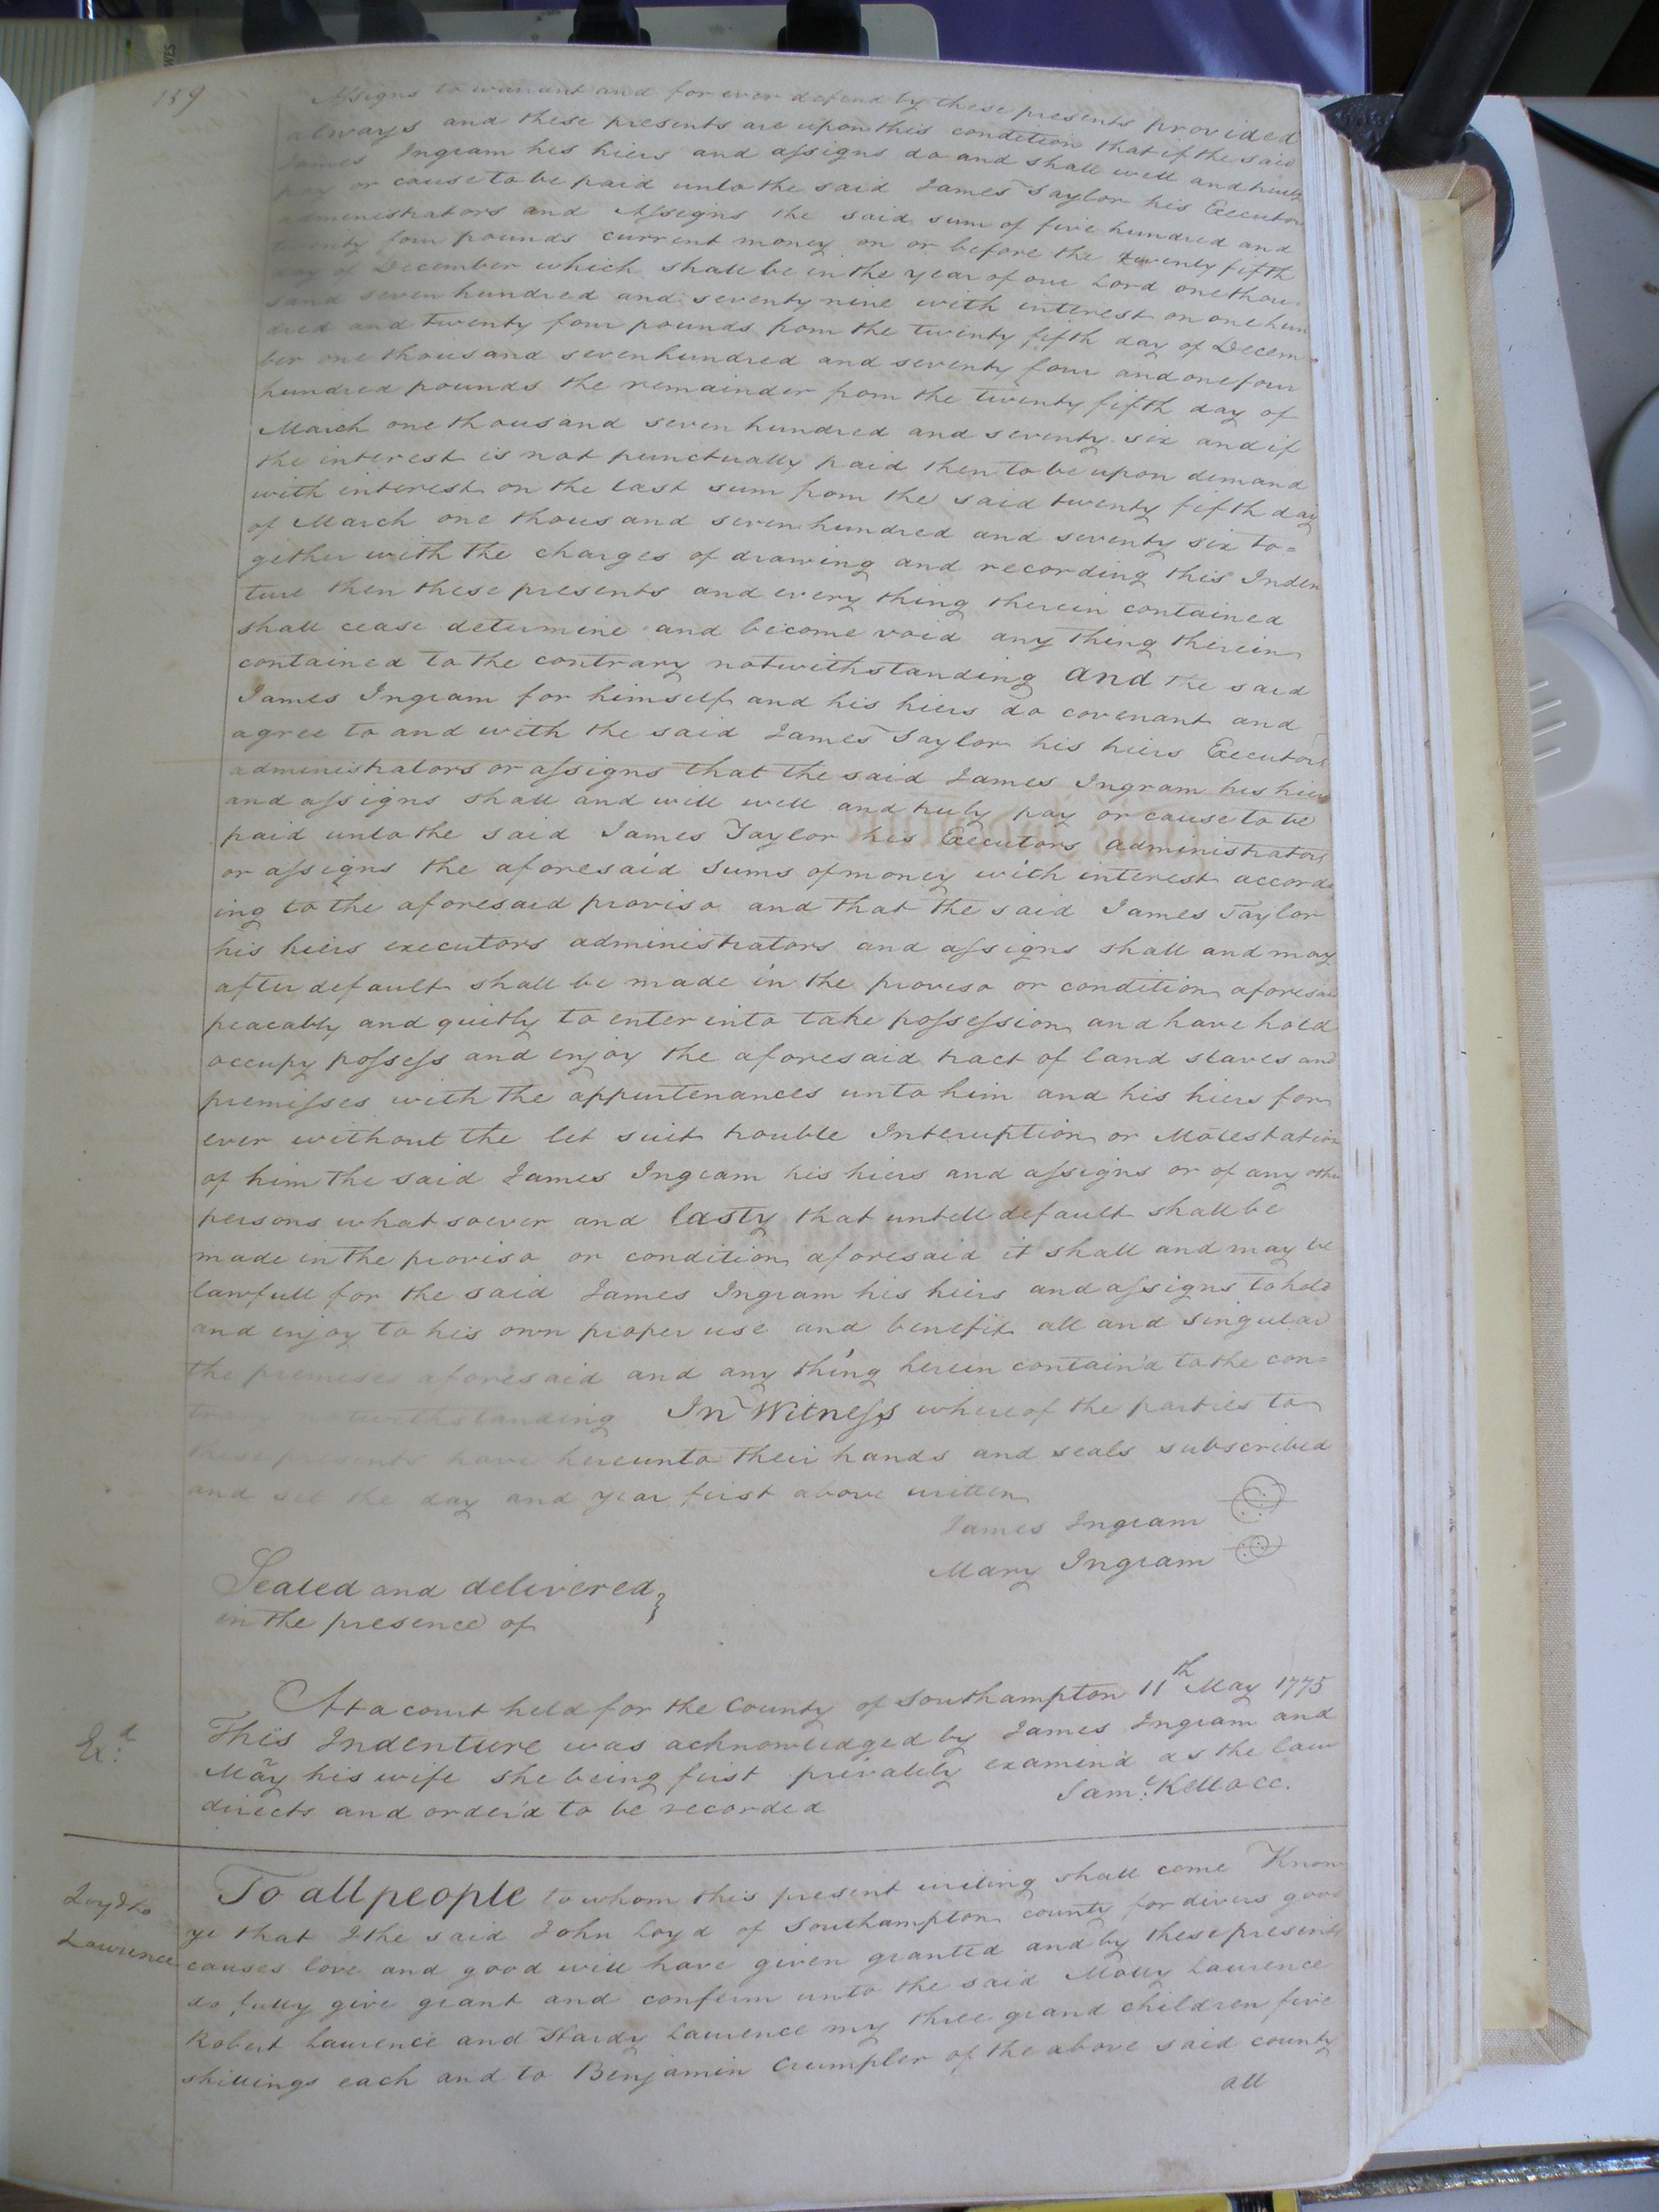 159
Assigns to warrant and for ever defend by these presents provided
always and these presents are upon this condition that if the said
James Ingram his hiers and assigns do and shall well and truly
pay or cause to be paid unto the said James Taylor his Executors
administrators and Assigns the said sum of five hundred and
twenty four pounds current money on or before the twenty fifth
day of December which shall be in the year of our Lord one thou
sand seven hundred and seventy nine with interest on one hun
dred and twenty four pounds from the twenty fifth day of Decem
ber one thousand seven hundred and seventy four and one four
hundred pounds the remainder from the twenty fifth day of
March one thousand seven hundred and seventy six and if
the interest is not punctually paid then to be upon demand
with interest on the last sum from the said twenty fifth day
of March one thousand seven hundred and seventy six to=
gether with the charges of drawing and recording this Inden
ture then these presents and every thing therein contained
shall cease determine and become void any thing therein
contained to the contrary notwithstanding and the said
James Ingram for himself and his hiers do covenant and
agree to and with the said James Taylor his hiers Executors
administrators or assigns that the said James Ingram his hiers
and assigns shall and will well and truly pay or cause to be
paid unto the said James Taylor his Executors administrators
or assigns the aforesaid sums of money with interest accord
ing to the aforesaid proviso and that the said James Taylor
his hiers executors administrators and assigns shall and may
after default shall be made in the proviso or condition aforesaid
peacably and quitly to enter into take possession and have hold
occupy possess and enjoy the aforesaid tract of land slaves and
premisses with the appurtenances unto him and his hiers for
ever without the let suit trouble Interuption or Molestation
of him the said James Ingram his hiers and assigns or of any other
persons whatsoever and lasty that untill default shall be
made in the proviso or condition aforesaid it shall and may be
lawfull for the said James Ingram his hiers and assigns to hold
and enjoy to his own proper use and benefit all and singular
the premises aforesaid and any thing herein contain'd to the con=
trary notwithstanding In Witness whereof the parties to
these presents have hereunto their hands and seals subscribed
and set the day and year first above written
James Ingram
Mary Ingram
Sealed and delivered
in the presence of
At a court held for the County of Southampton 11th May 1775
Exd.
This Indenture was acknowledged by James Ingram and
May his wife she being first privately examin'd as the law
directs and order'd to be recorded Saml. Kello CC.
Loyd to
Lawrence
To all people to whom this present writing shall come Know
ye that I the said John Loyd of Southampton county for divers good
causes love and good will have given granted and by these presents
do fully give grant and confirm unto the said Molly Laurence
Robert Laurence and Hardy Laurence my three grand children five
shillings each and to Benjamin Crumpler of the above said county
all